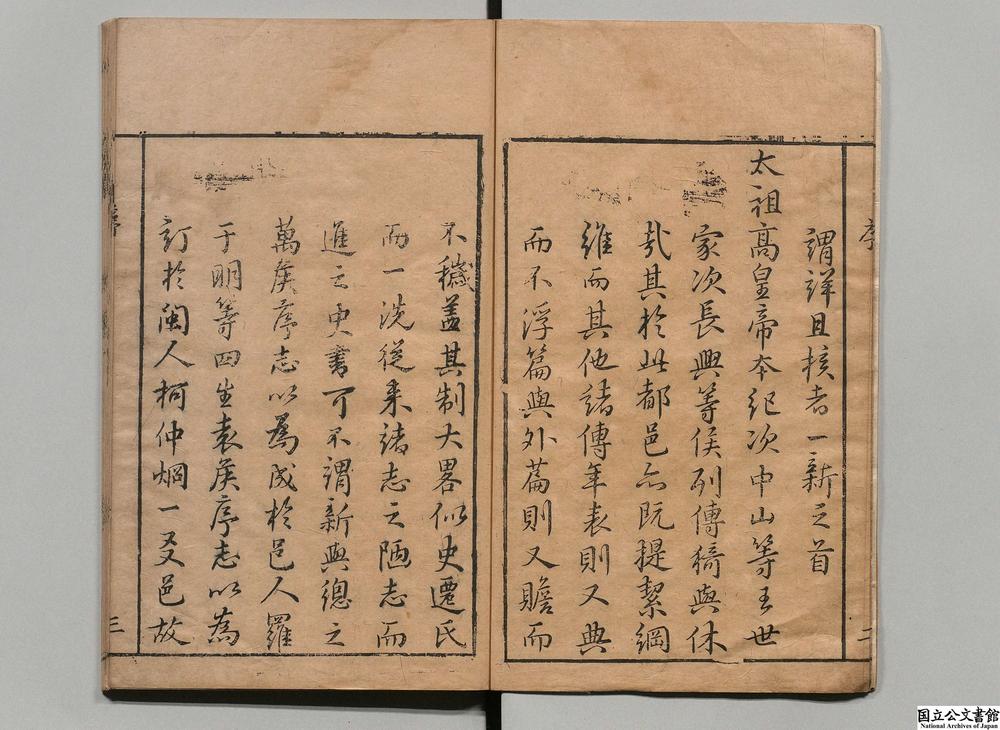 謂詳且核者一新之首
太祖高皇帝本紀次中山等王世
家次長興等侯列傳猗與休
哉其於此都邑亦既提挈綱
維而其他諸傳年表則又典
而不浮篇與外篇則又贍而
不穢蓋其制大畧似史遷氏
而一洗從来諸志之陋志而
進之史書可不謂新與總之
萬侯序志以爲成於邑人羅
于明等四生袁侯序志以為
訂於閩人柯仲烱一又邑故
序
三
国立公文書館
National Archives of Japan